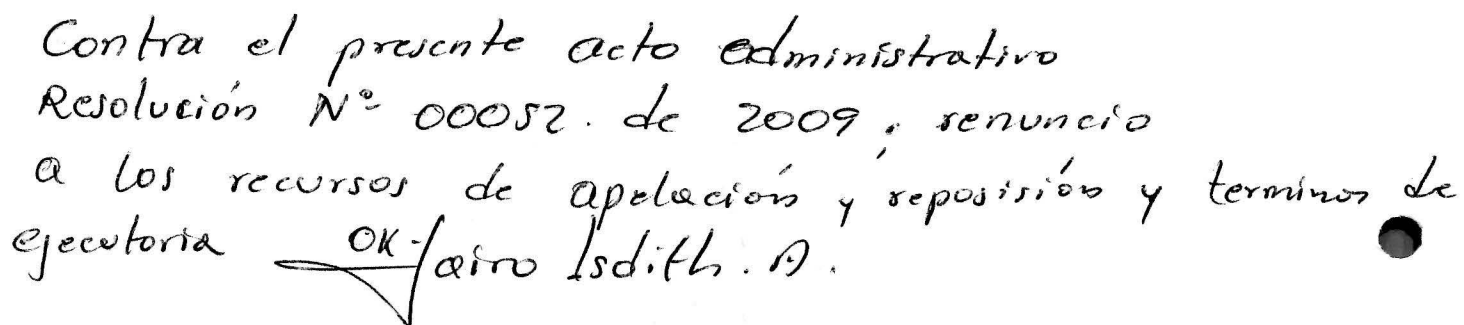 Contra el presente acto administrativo
Resolución Nº 00052. de 2009, renuncio
a los recursos de apelación y reposisión y terminos de
ejecutoria OK. Jairo Isdith. A.